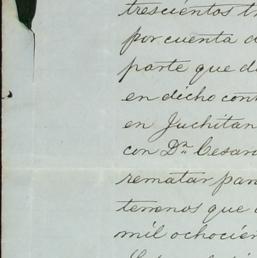 trescientos tr
por cuenta d
parte que di
en dicho con
en Juchitan
con Dn Cesar
rematar par
terrenos que
mil ochocien